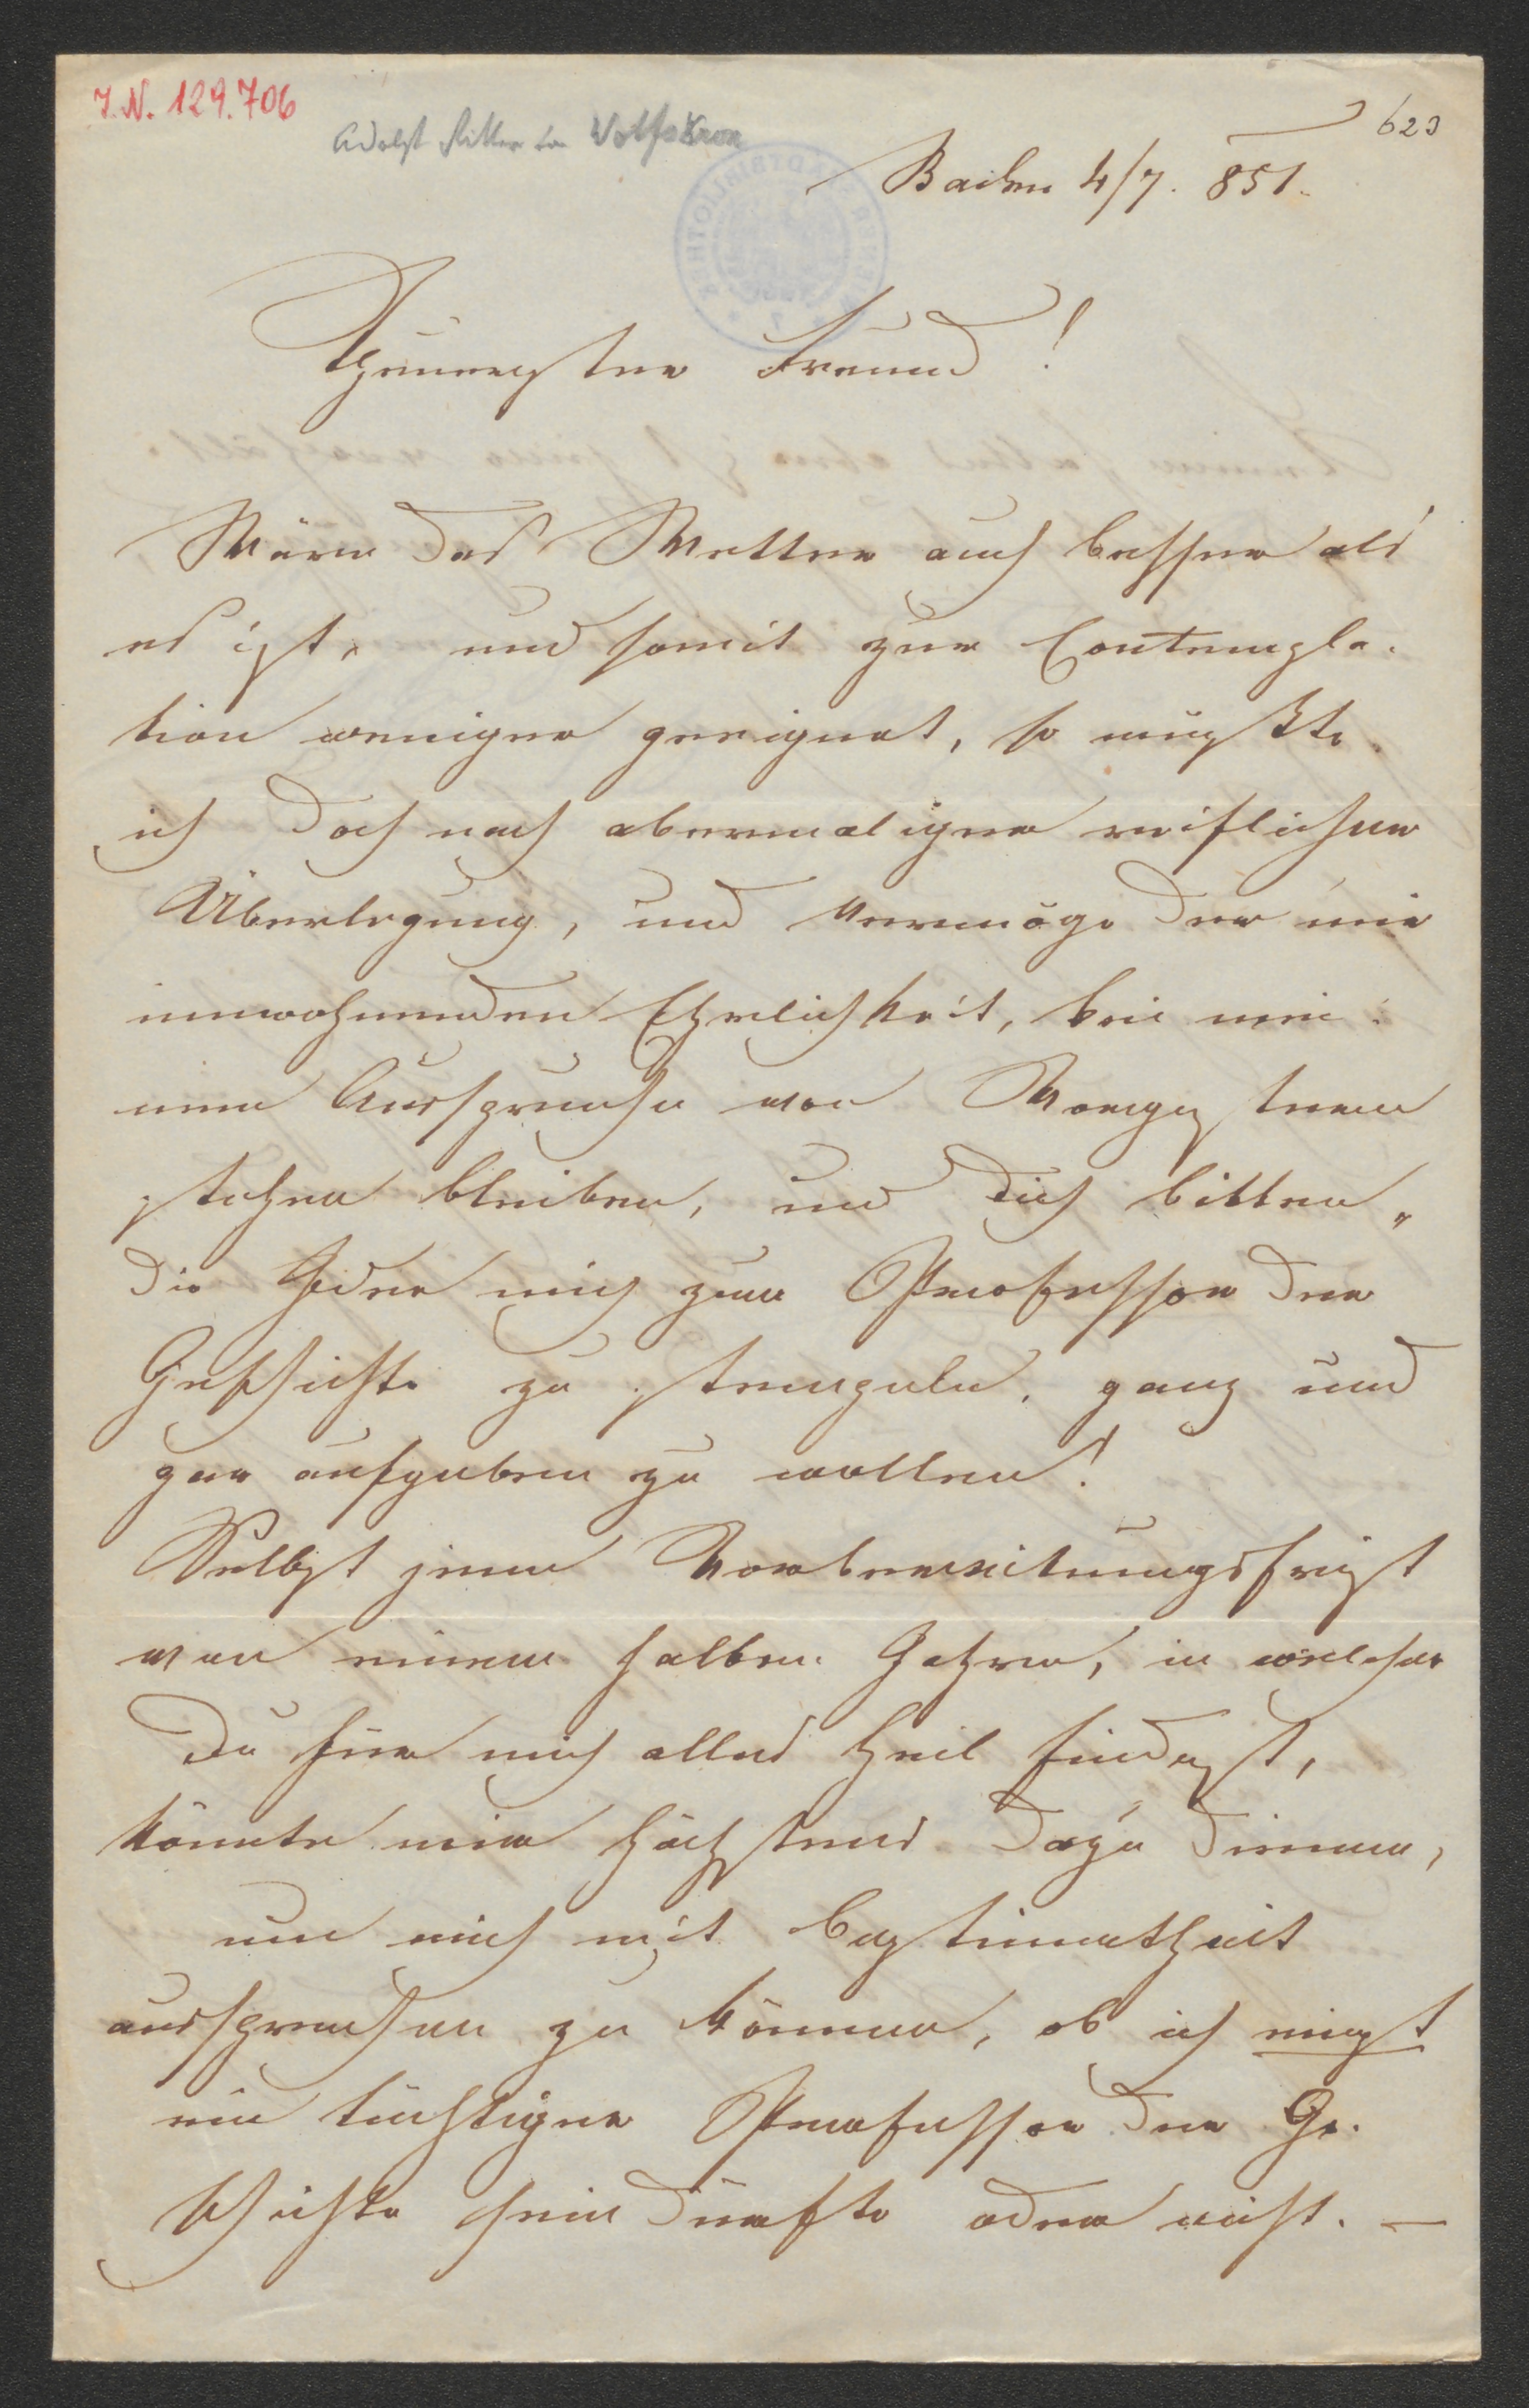 I.N. 129.706
Adolf Ritter von Wolfskron
623
Baden 4/7. 851.
Theuerster Freund!
Wäre das Wetter auch besser als
es ist, und somit zur Contempla-
tion weniger geeignet, so müßte
ich doch nach abermaliger reiflicher
Überlegung, und vermöge der mir
innwohnenden Ehrlichkeit, bei mei-
nem Ausspruche von
stehen bleiben, und dich bitten,
die Idee mich zum Professor der
Geschichte zu stempeln, ganz und
gar aufgeben zu wollen!
Selbst jene Vorbereitungsfrist
von einem halben Jahre, in welcher
Du für mich alles Heil findest,
könnte mir höchstens dazu dienen,
um mich mit Bestimmtheit
aussprechen zu können, ob ich einst
ein tüchtiger Professor der Ge-
schichte sein dürfte oder nicht. —